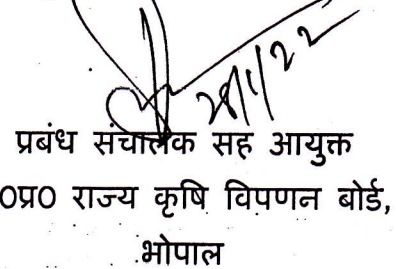 28/1/22
प्रबंध संचालक सह आयुक्त
0प्र0 राज्य कृषि विपणन बोर्ड,
भोपाल